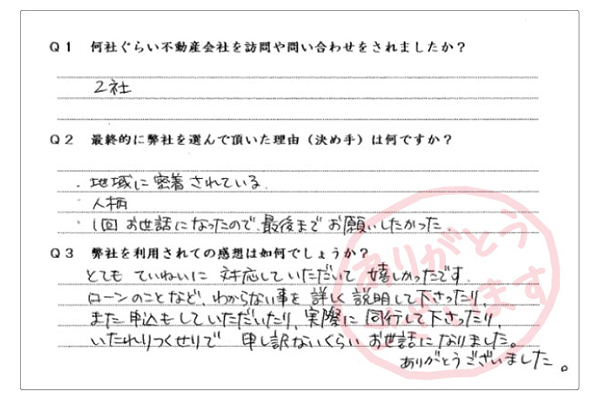 Q1 何社ぐらい不動産会社を訪問や問い合わせをされましたか？
2社
Q2 最終的に弊社を選んで頂いた理由（決め手）は何ですか？
・地域に密着されている.
・人柄
・1回 お世話になったので、最後まで お願いしたかった.
Q3 弊社を利用されての感想は如何でしょうか？
とても ていねいに 対応していただいて 嬉しかったです.
ローンのことなど、わからない事を 詳しく 説明して下さったり、
また 申込もしていただいたり、実際に 同行して下さったり、
いたれりつくせりで 申し訳ないくらい お世話になりました。
ありがとうございました。
ありがとう
ございます